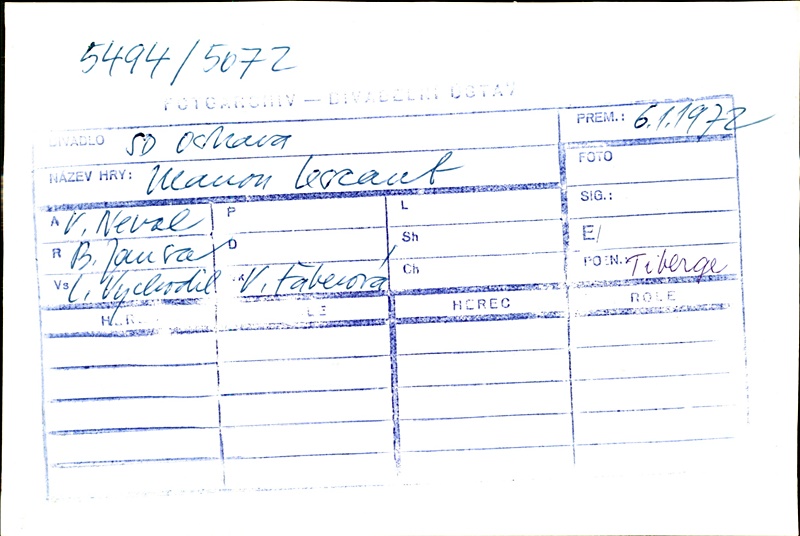 5494/5072
FOTOARCHIV — DIVADELNÍ ÚSTAV
DIVADLO SD Ostrava PREM.: 6.1.1972
NÁZEV HRY: Manon Lescaut FOTO
A V. Neval P L SIG.:
R B. Jansa D Sh E/
Vs L. Vychodil K V. Faberová Ch POZN.: Tiberge
HEREC ROLE HEREC ROLE